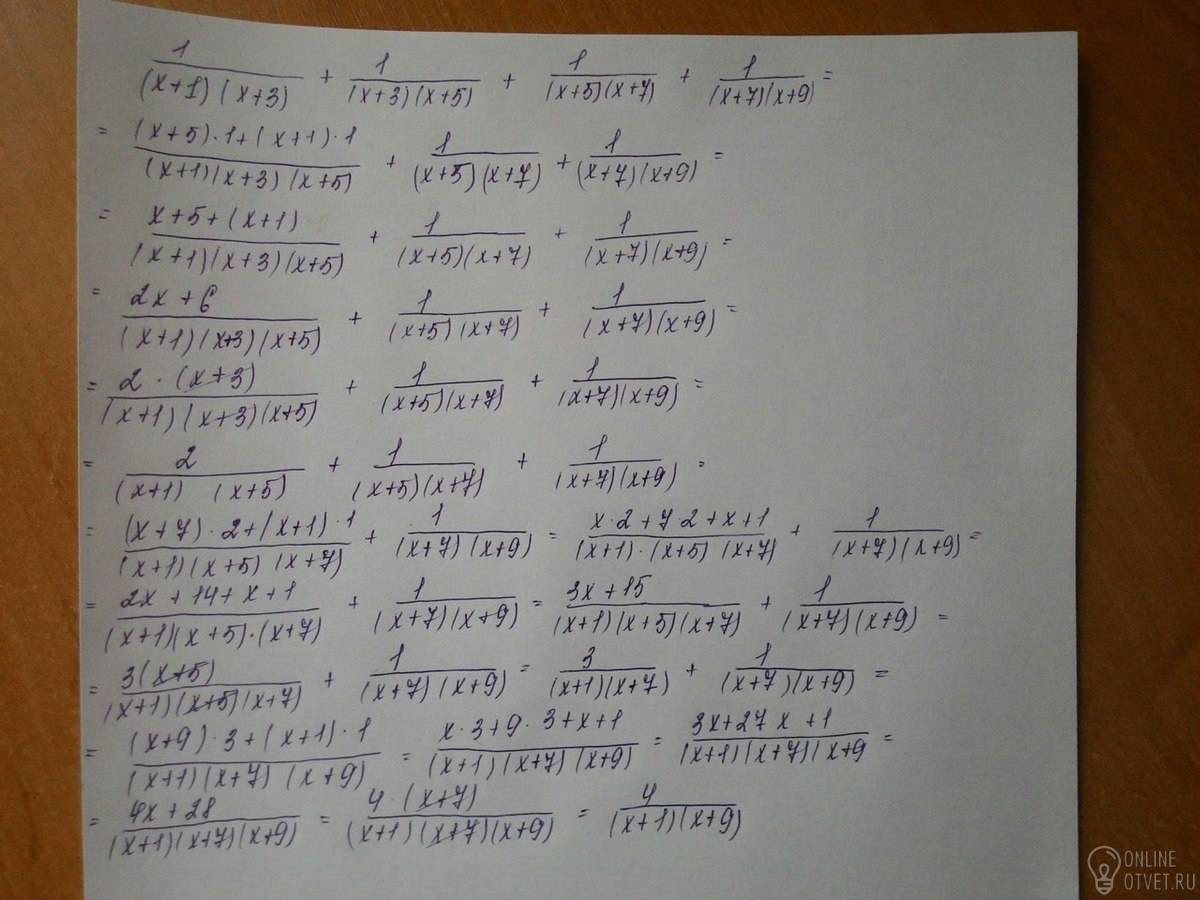 1/((x+1)(x+3)) + 1/((x+3)(x+5)) + 1/((x+5)(x+7)) + 1/((x+7)(x+9)) =
= ((x+5)·1+(x+1)·1)/((x+1)(x+3)(x+5)) + 1/((x+5)(x+7)) + 1/((x+7)(x+9)) =
= (x+5+(x+1))/((x+1)(x+3)(x+5)) + 1/((x+5)(x+7)) + 1/((x+7)(x+9)) =
= (2x+6)/((x+1)(x+3)(x+5)) + 1/((x+5)(x+7)) + 1/((x+7)(x+9)) =
= (2·(x+3))/((x+1)(x+3)(x+5)) + 1/((x+5)(x+7)) + 1/((x+7)(x+9)) =
= 2/((x+1)(x+5)) + 1/((x+5)(x+7)) + 1/((x+7)(x+9)) =
= ((x+7)·2+(x+1)·1)/((x+1)(x+5)(x+7)) + 1/((x+7)(x+9)) = (x·2+7·2+x+1)/((x+1)·(x+5)(x+7)) + 1/((x+7)(x+9)) =
= (2x+14+x+1)/((x+1)(x+5)·(x+7)) + 1/((x+7)(x+9)) = (3x+15)/((x+1)(x+5)(x+7)) + 1/((x+7)(x+9)) =
= (3(x+5))/((x+1)(x+5)(x+7)) + 1/((x+7)(x+9)) = 3/((x+1)(x+7)) + 1/((x+7)(x+9)) =
= ((x+9)·3+(x+1)·1)/((x+1)(x+7)(x+9)) = (x·3+9·3+x+1)/((x+1)(x+7)(x+9)) = (3x+27x+1)/((x+1)(x+7)(x+9) =
= (4x+28)/((x+1)(x+7)(x+9)) = (4·(x+7))/((x+1)(x+7)(x+9)) = 4/((x+1)(x+9))
ONLINE
OTVET.RU